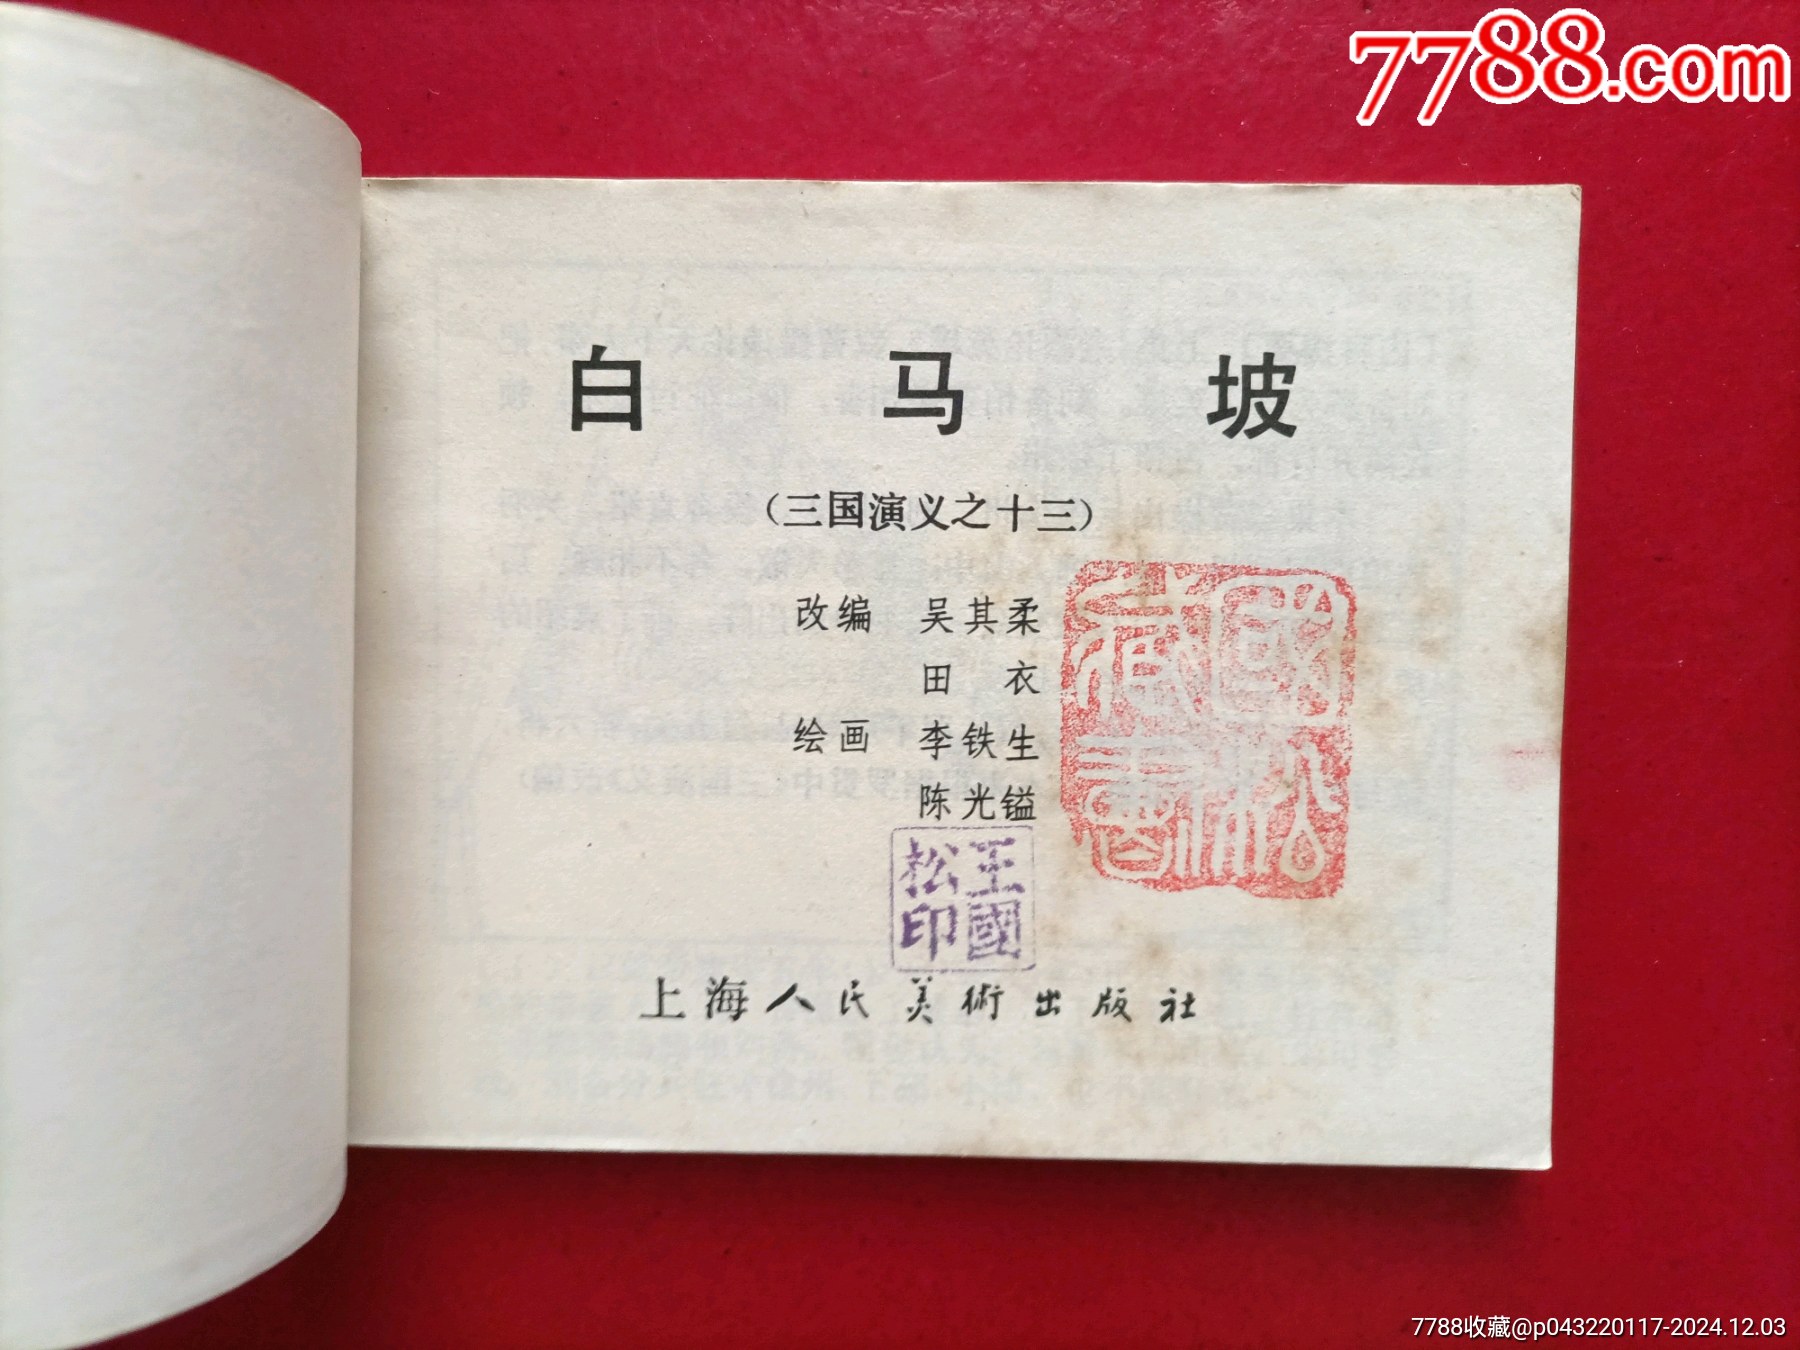 7788.com
白马坡
(三国演义之十三)
改编 吴其柔
田衣
绘画 李铁生
陈光镒
國松
藏書
王國
松印
上海人民美術出版社
7788收藏@p043220117-2024.12.03